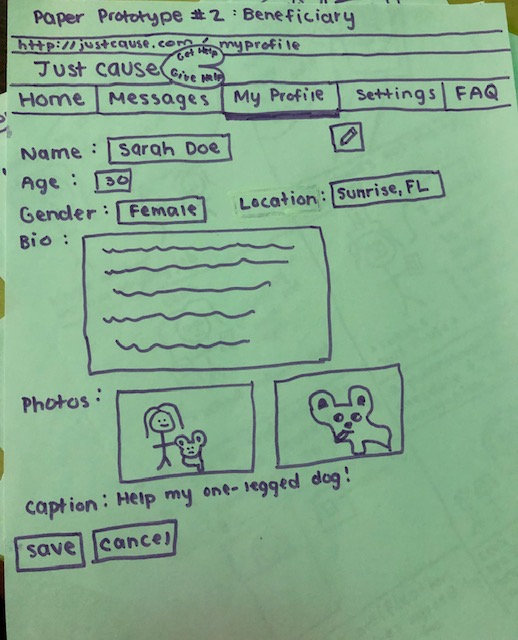 Paper Prototype #2 : Beneficiary
http://justcause.com/myprofile
Just cause
Get Help
Give Help
Home Messages My Profile Settings FAQ
Name : Sarah Doe
Age : 30
Gender : Female Location : Sunrise, FL
Bio :
Photos :
Caption : Help my one-legged dog!
save cancel